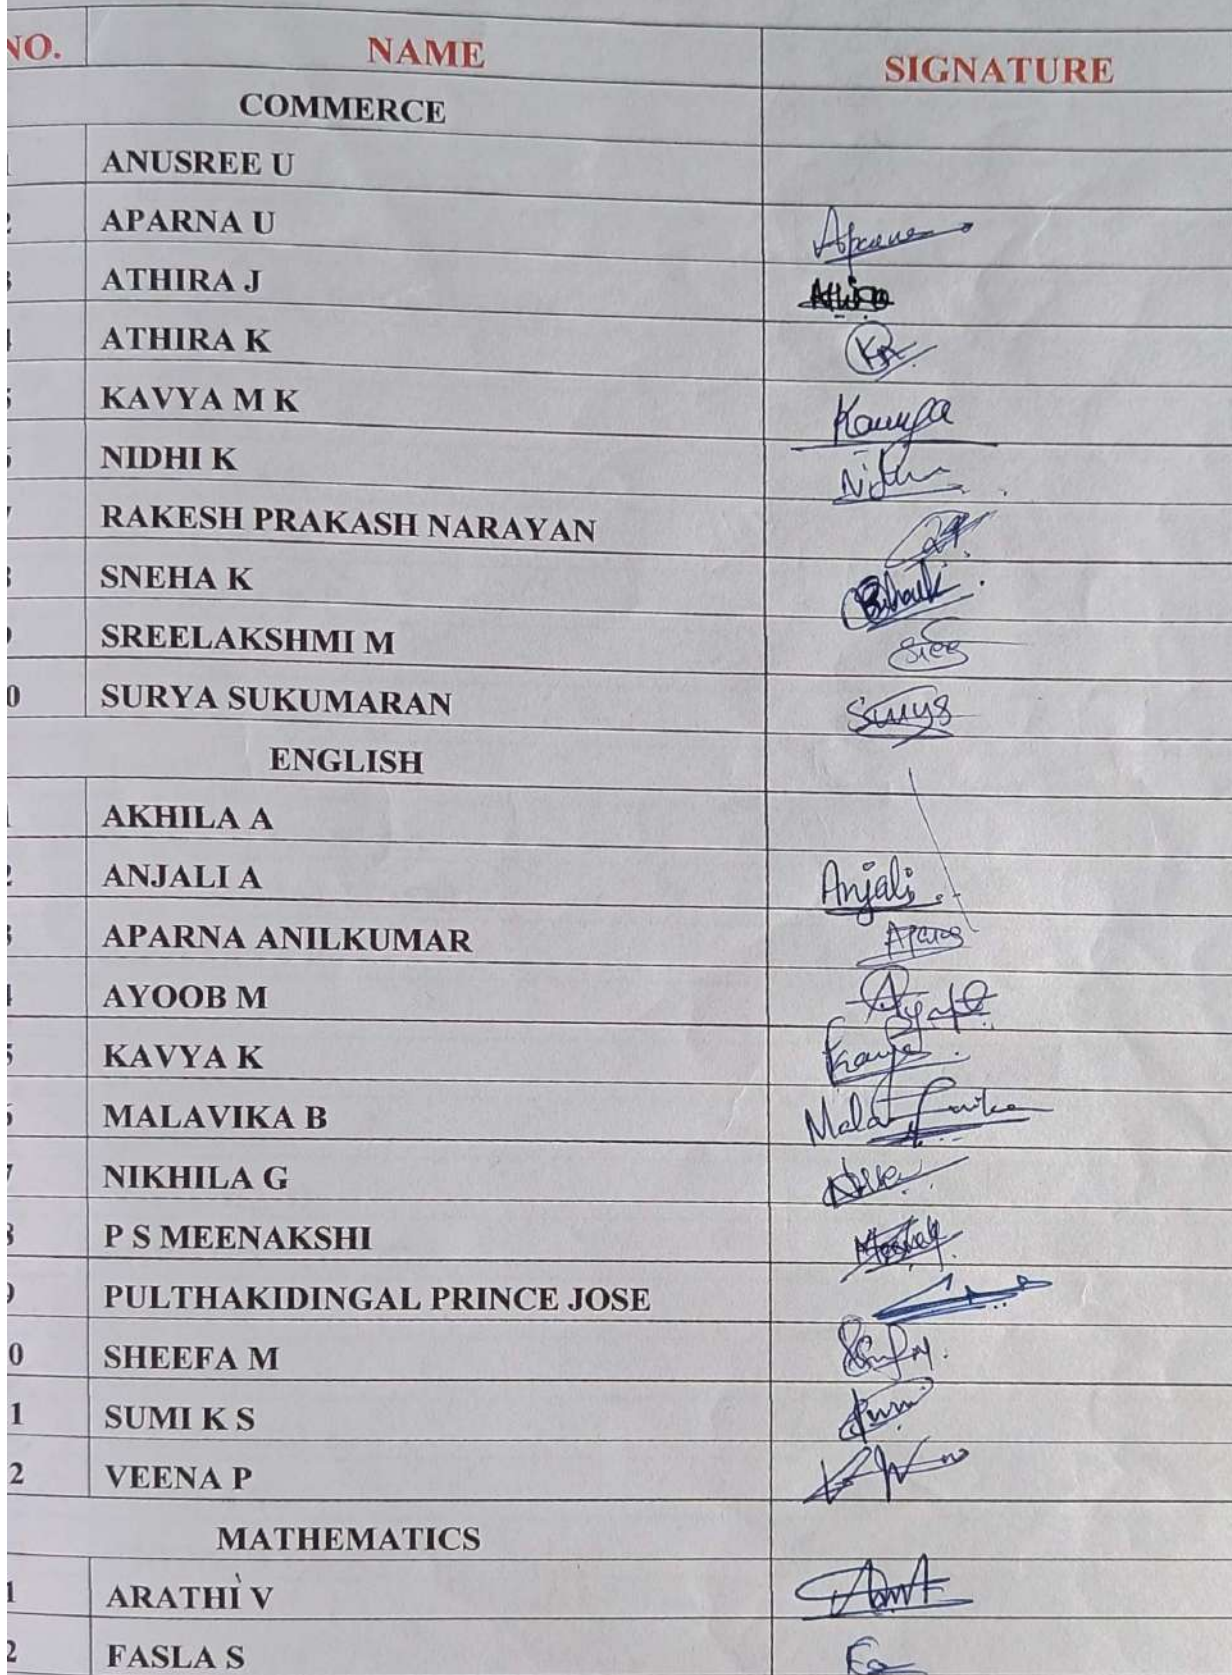 NO. NAME SIGNATURE
COMMERCE
1 ANUSREE U
2 APARNA U Aparna
3 ATHIRA J Athira
4 ATHIRA K
5 KAVYA M K Kavya
6 NIDHI K Nidhi
7 RAKESH PRAKASH NARAYAN
8 SNEHA K
9 SREELAKSHMI M Sree
0 SURYA SUKUMARAN Surya
ENGLISH
1 AKHILA A
2 ANJALI A Anjali
3 APARNA ANILKUMAR
4 AYOOB M
5 KAVYA K Kavya
6 MALAVIKA B Malavika
7 NIKHILA G
8 P S MEENAKSHI
9 PULTHAKIDINGAL PRINCE JOSE
0 SHEEFA M
1 SUMI K S Sumi
2 VEENA P
MATHEMATICS
1 ARATHI V
2 FASLA S